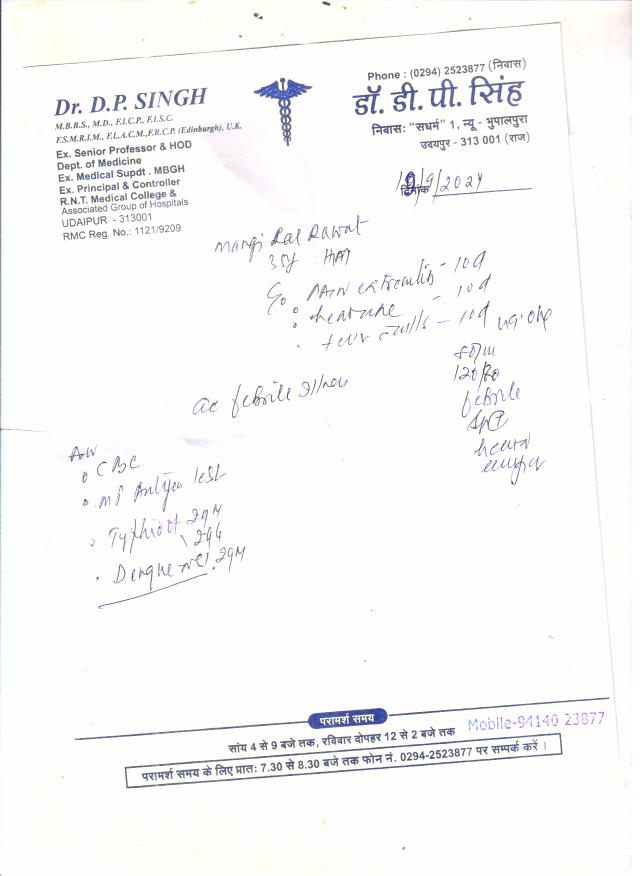 Dr. D.P. SINGH
M.B.B.S., M.D., F.I.C.P., F.I.S.C.
F.S.M.R.I.M., F.L.A.C.M.,F.R.C.P. (Edinburgh), U.K.
Ex. Senior Professor & HOD
Dept. of Medicine
Ex. Medical Supdt . MBGH
Ex. Principal & Controller
R.N.T. Medical College &
Associated Group of Hospitals
UDAIPUR - 313001
RMC Reg. No.: 1121/9209
Phone : (0294) 2523877 (निवास)
डॉ. डी. पी. सिंह
निवासः "सधर्म" 1, न्यू - भुपालपुरा
उदयपुर - 313 001 (राज)
दिनांक /9/2024
Mangi Lal Rawat
35y
c/o Pain extremities - 10d
• headache - 10d
• fever chills - 10d
80/m
120/80
febrile
ac febrile illness
Adv
• CBC
• MP Antigen test
• Typhidot IgM
IgG
• Dengue NS1 IgM
परामर्श समय
सांय 4 से 9 बजे तक, रविवार दोपहर 12 से 2 बजे तक
Mobile-94140 23877
परामर्श समय के लिए प्रातः 7.30 से 8.30 बजे तक फोन नं. 0294-2523877 पर सम्पर्क करें ।